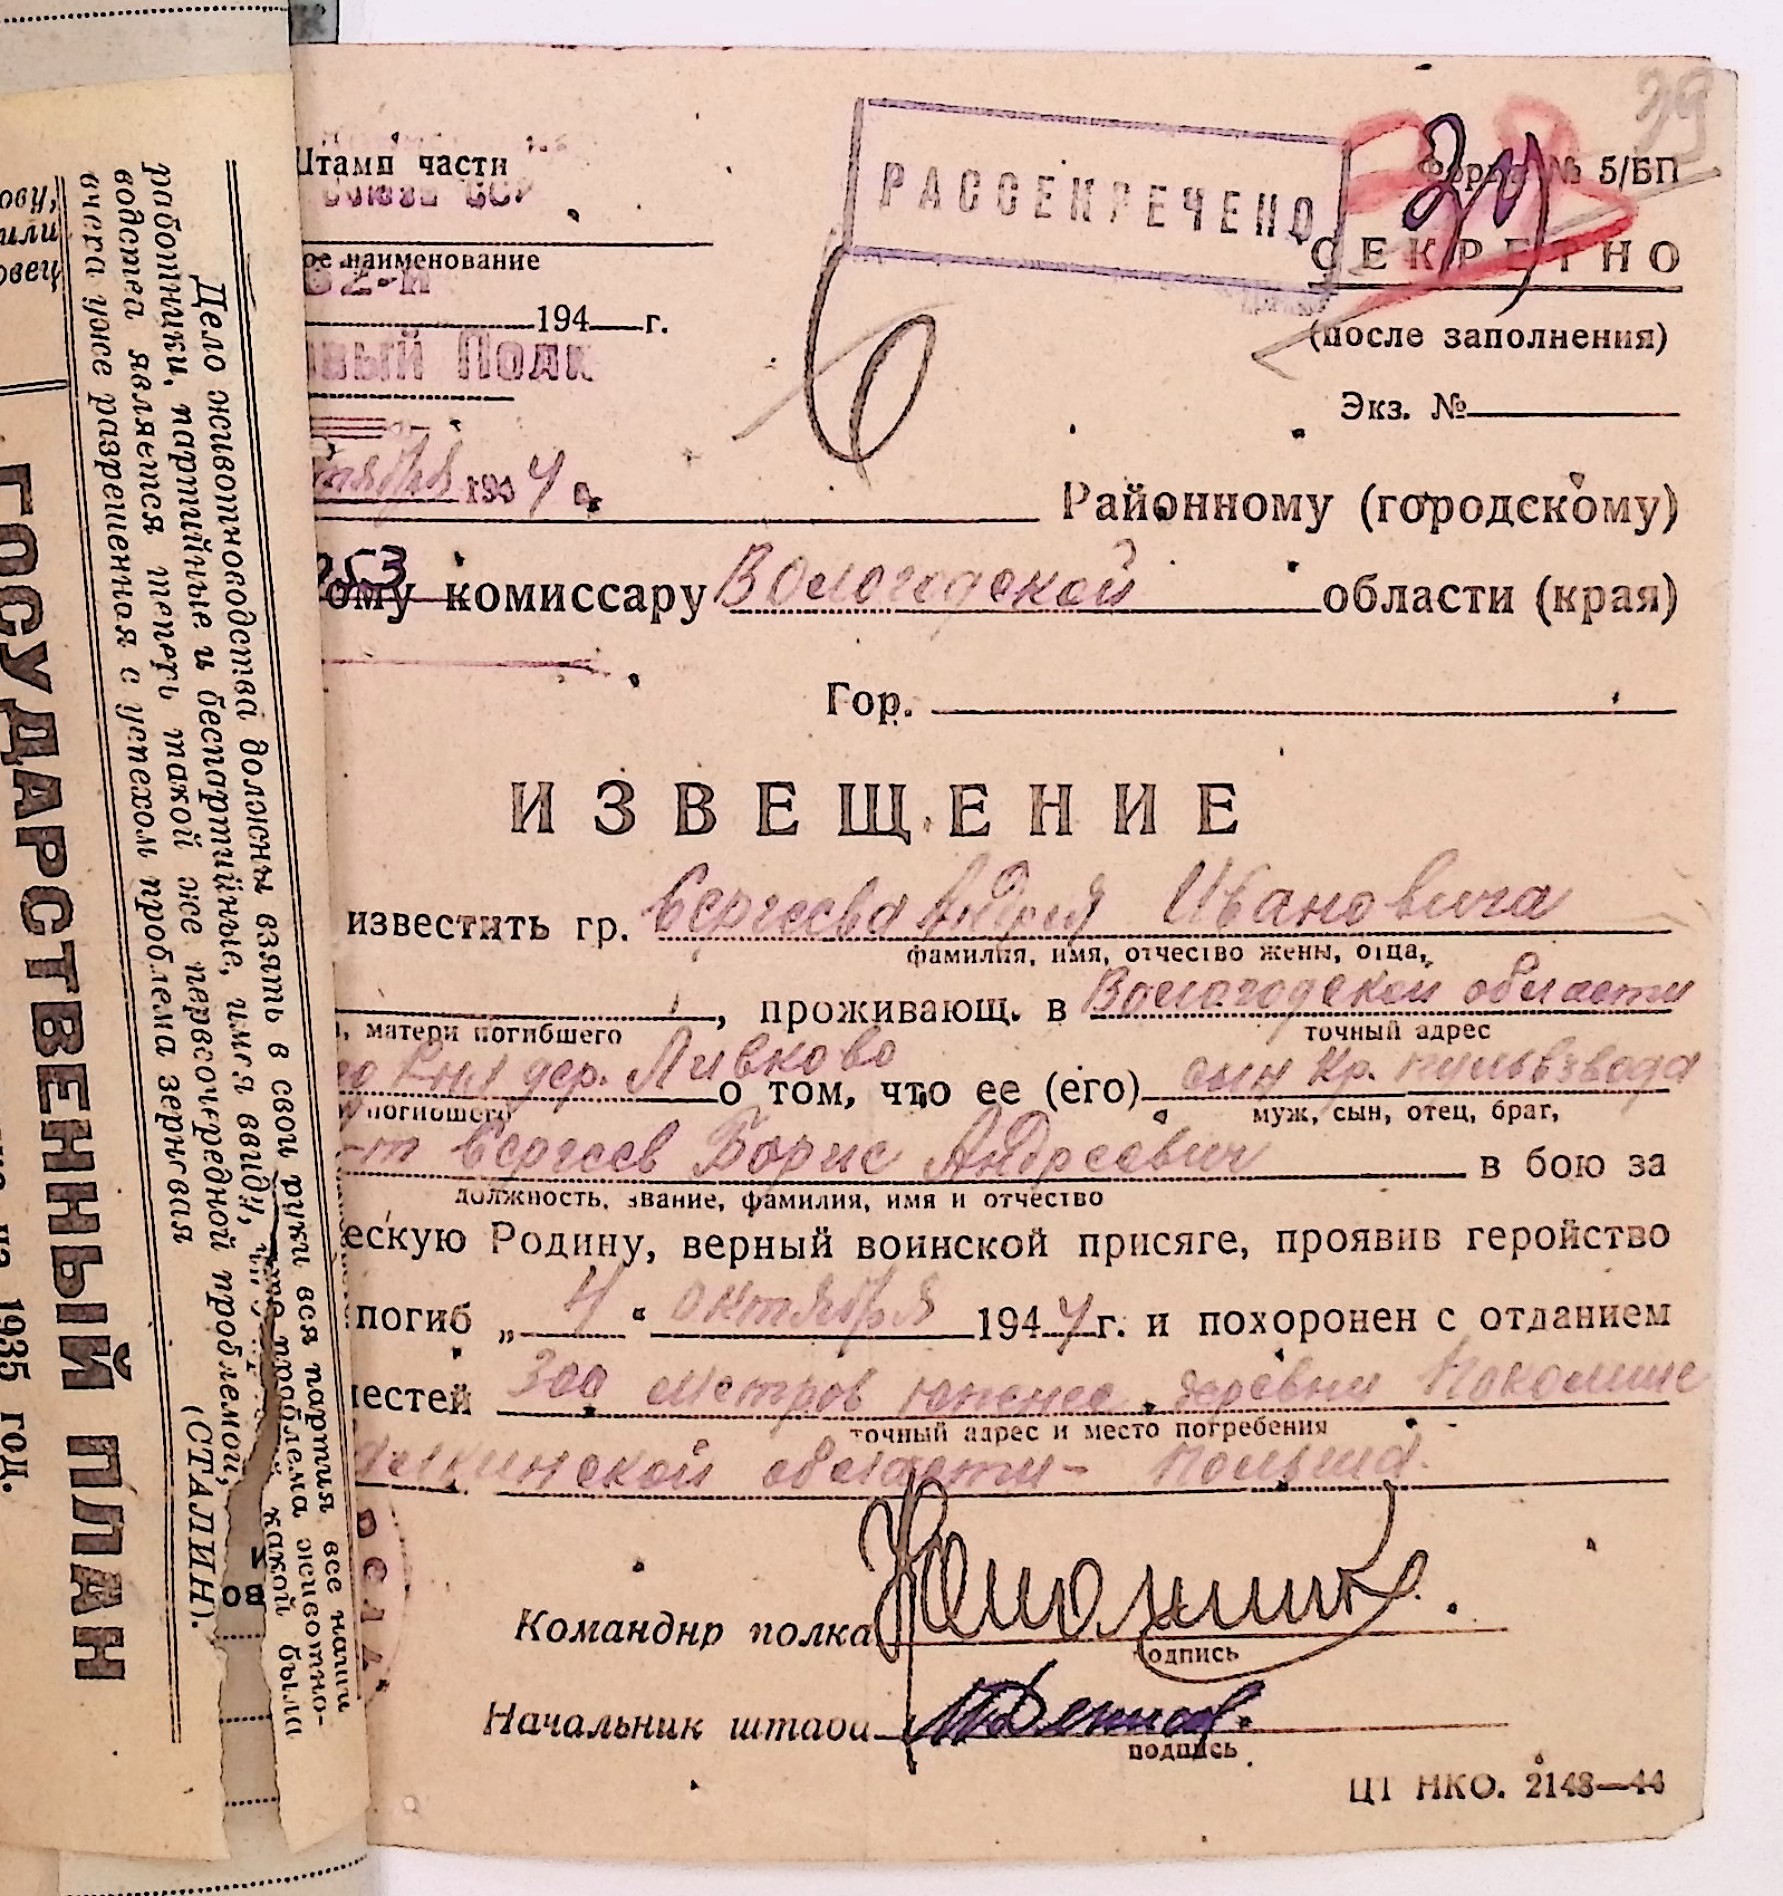 Штамп части
Союза ССР
ое наименование
62-й
194 г.
вый Полк
тября 1944 г.
РАССЕКРЕЧЕНО
39
Форма № 5/БП
СЕКРЕТНО
(после заполнения)
Экз. №
6
Районному (городскому)
253
ому комиссару Вологодской области (края)
Гор.
ИЗВЕЩЕНИЕ
известить гр. Сергеева Андрея Ивановича
фамилия, имя, отчество жены, отца,
, проживающ. в Вологодской области
, матери погибшего
точный адрес
дер. Ливково о том, что ее (его) сын Кр. пульвзвода
погибшего
муж, сын, отец, брат,
-т Сергеев Борис Андреевич в бою за
должность, звание, фамилия, имя и отчество
ескую Родину, верный воинской присяге, проявив геройство
погиб „4" октября 1944 г. и похоронен с отданием
честей 300 метров южнее деревни
точный адрес и место погребения
области - Польша.
Командир полка
подпись
Начальник штаба
подпись
ЦТ НКО. 2148—44
ГОСУДАРСТВЕННЫЙ ПЛАН
на 1935 год.
Дело животноводства должны взять в свои руки вся партия все наши
работники, партийные и беспартийные, имея ввиду, что проблема животно-
водства является теперь такой же первоочередной проблемой, какой была
вчера уже разрешенная с успехом проблема зерновая
(СТАЛИН).